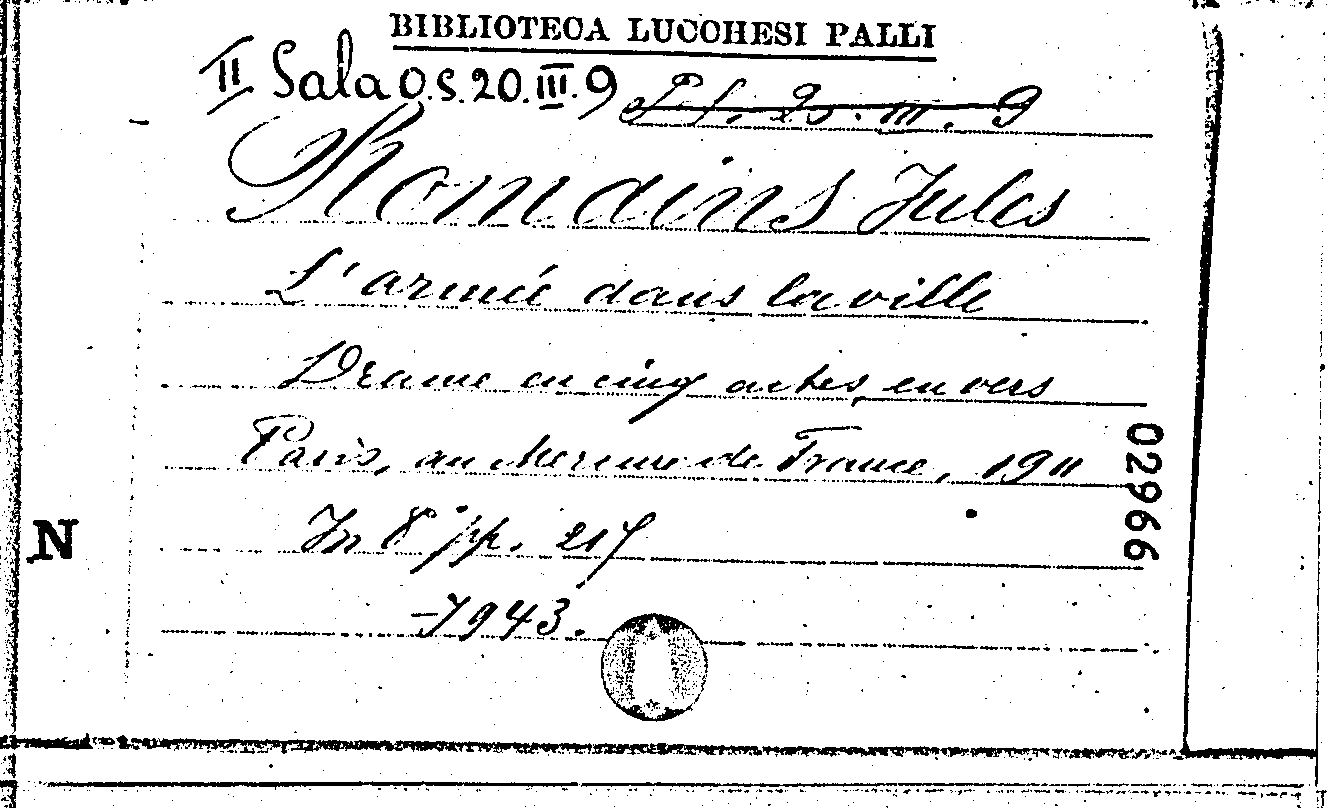 BIBLIOTECA LUCCHESI PALLI
II Sala O.S. 20.III.9 P.S. 20.III.9
Romains Jules
L'armée dans la ville
Drame en cinq actes, en vers
Paris, au Mercure de France, 1911
In 8° pp. 217
7943.
02966
N